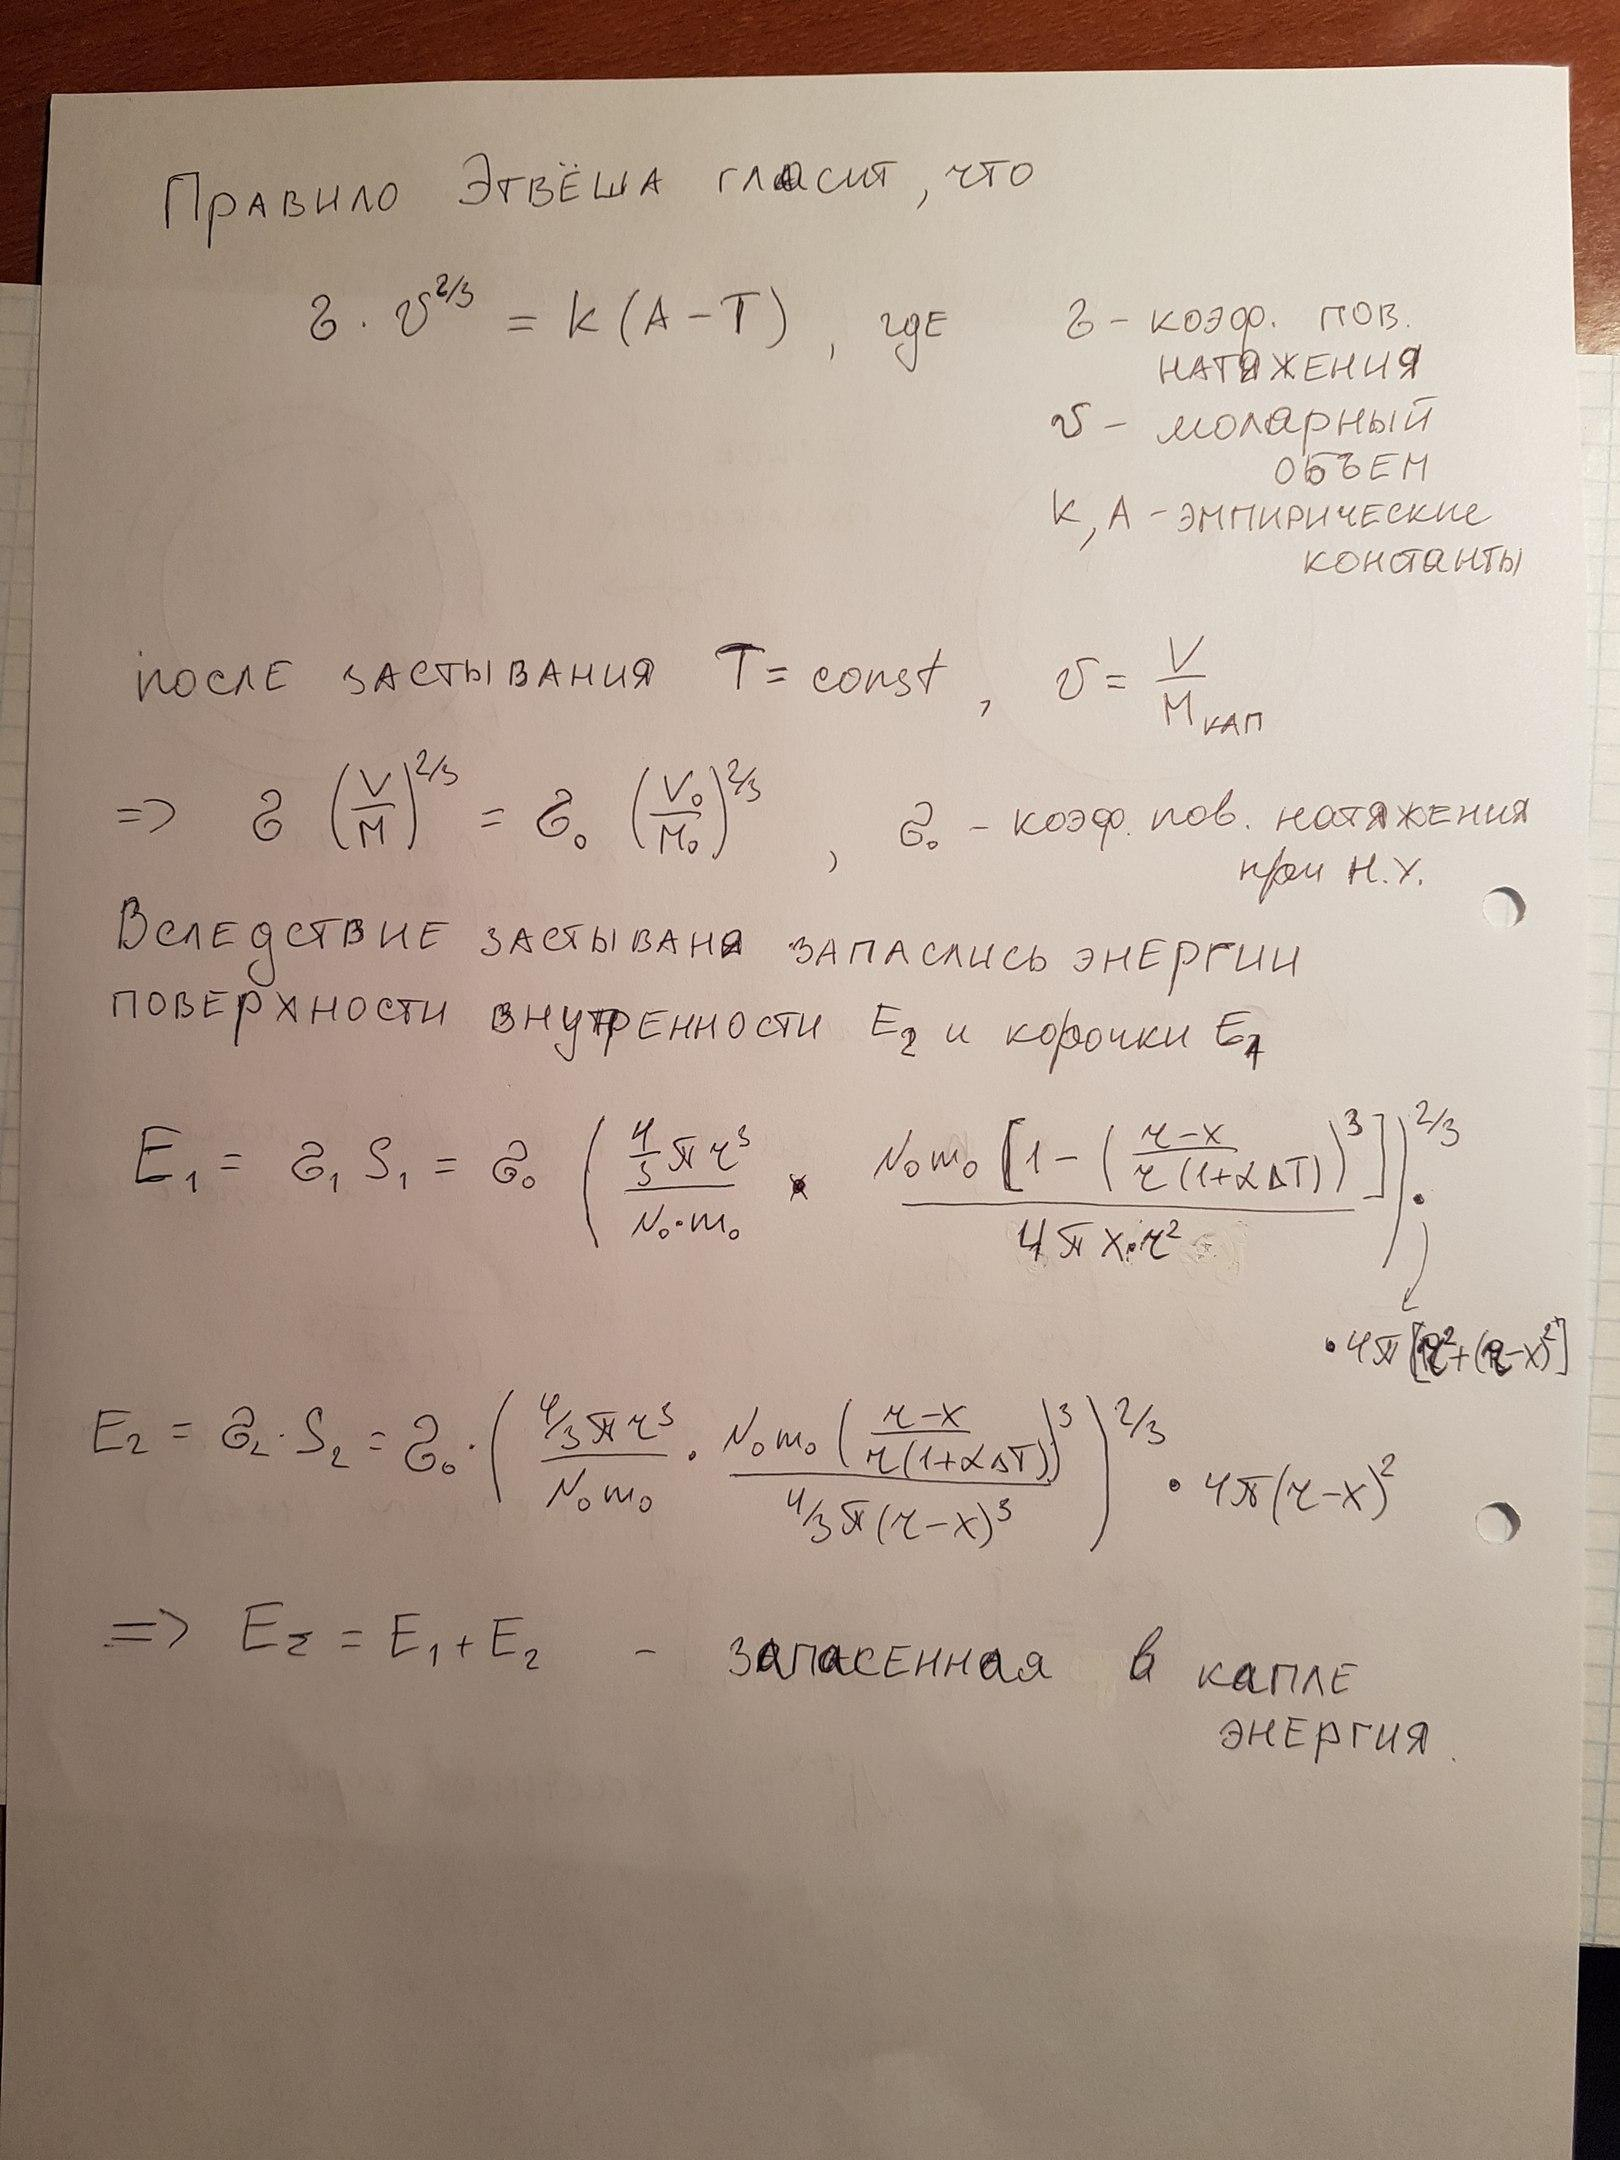 Правило Этвёша гласит, что
σ · v^2/3 = k (A − T), где σ − коэф. пов.
натяжения
v − молярный
объем
k, A − эмпирические
константы
после застывания T = const, v = V/M кап
=> σ (V/M)^2/3 = σ₀ (V₀/M₀)^2/3, σ₀ − коэф. пов. натяжения
при н.у.
Вследствие застываня запаслись энергии
поверхности внутренности E₂ и корочки E₁
E₁ = σ₁ S₁ = σ₀ ( (4/3 π r³)/(N₀·m₀) · (N₀m₀ [1 − ((r−x)/(r(1+αΔT)))³])/(4π x·r²) )^2/3 ·
· 4π [r² + (r−x)²]
E₂ = σ₂ · S₂ = σ₀ · ( (4/3 π r³)/(N₀m₀) · (N₀m₀ ((r−x)/(r(1+αΔT)))³)/(4/3 π (r−x)³) )^2/3 · 4π(r−x)²
=> E_Σ = E₁ + E₂ − запасенная в капле
энергия.